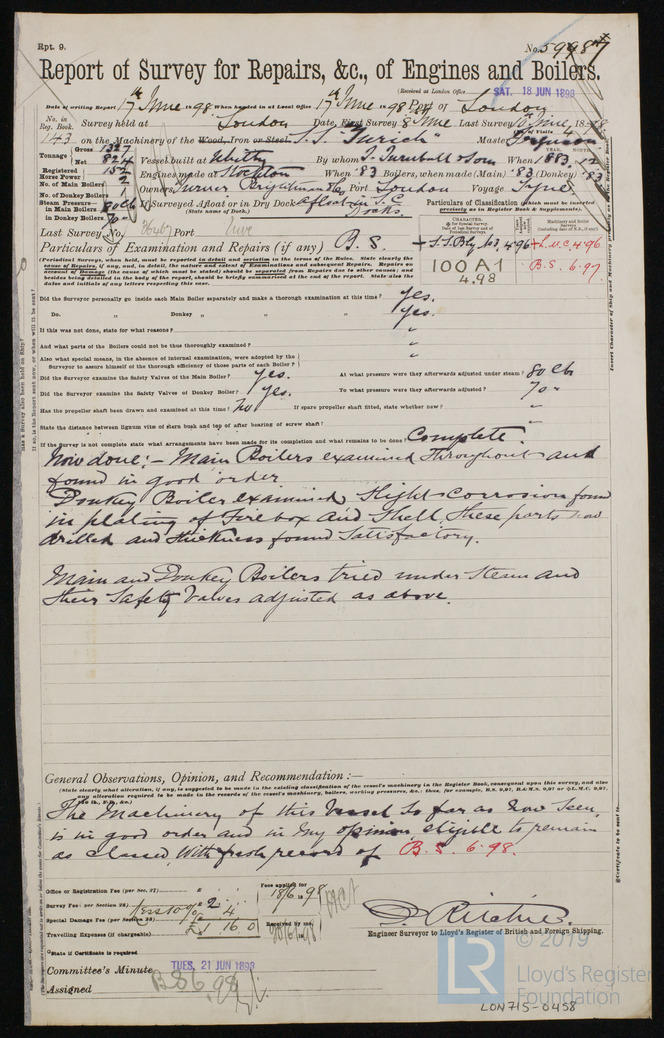 Rpt. 9.
No. 59987
Report of Survey for Repairs, &c., of Engines and Boilers.
(Received at London Office SAT. 18 JUN 1898
Date of writing Report 17th June 1898 When handed in at Local Office 17th June 1898 Port of London
No. in Reg. Book. Survey held at London Date, First Survey 8 June Last Survey 1898
143 on the Machinery of the Wood, Iron or Steel S.S. "Zurich" Master Ferguson
Tonnage Gross 1327
Net 824 Vessel built at Whitby By whom T. Turnbull & Son When 1883. 12
Registered Horse Power 152 Engines made at Stockton When '83 Boilers, when made (Main) '83 (Donkey) '83
No. of Main Boilers 2
No. of Donkey Boilers 1 Owners Turner, Brightman & Co Port London Voyage Tyne
Steam Pressure in Main Boilers 80 lb If Surveyed Afloat or in Dry Dock afloat in
in Donkey Boilers 70 (State name of Dock.) Docks.
Particulars of Classification (which must be inserted precisely as in Register Book & Supplements).
Last Survey No. Port
Particulars of Examination and Repairs (if any) B. S.
+ S.S. No 3. 4 96
100 A1
4.98
L.M.C. 4 96
B.S. 6.97
(Periodical Surveys, when held, must be reported in detail and seriatim in the terms of the Rules. State clearly the
cause of Repairs, if any, and, in detail, the nature and extent of Examinations and subsequent Repairs. Repairs on
account of Damage (the cause of which must be stated) should be separated from Repairs due to other causes; and
besides being detailed in the body of the report, should be briefly summarised at the end of the report. State also the
dates and initials of any letters respecting this case.
Did the Surveyor personally go inside each Main Boiler separately and make a thorough examination at this time? yes.
Do. " Donkey " " " yes.
If this was not done, state for what reasons? "
And what parts of the Boilers could not be thus thoroughly examined? "
Also what special means, in the absence of internal examination, were adopted by the
Surveyor to assure himself of the thorough efficiency of those parts of each Boiler? "
Did the Surveyor examine the Safety Valves of the Main Boiler? yes. At what pressure were they afterwards adjusted under steam? 80 lb
Did the Surveyor examine the Safety Valves of Donkey Boiler? yes. To what pressure were they afterwards adjusted? 70 "
Has the propeller shaft been drawn and examined at this time? no If spare propeller shaft fitted, state whether new? "
State the distance between lignum vitæ of stern bush and top of after bearing of screw shaft? "
If the Survey is not complete state what arrangements have been made for its completion and what remains to be done Complete.
Now done:- Main Boilers examined throughout and
found in good order
Donkey Boiler examined. Slight corrosion found
in plating of Firebox and Shell, these parts now
drilled and thickness found Satisfactory.
Main and Donkey Boilers tried under Steam and
their Safety Valves adjusted as above.
General Observations, Opinion, and Recommendation:—
(State clearly what alteration, if any, is suggested to be made in the existing classification of the vessel's machinery in the Register Book, consequent upon this survey, and also
any alteration required to be made in the records of the vessel's machinery, boilers, working pressure, &c.: thus, for example, B.S. 9,97, B.&M.S. 9,97 or L.M.C. 9,97,
The Machinery of this Vessel so far as now seen
is in good order and in my opinion eligible to remain
as classed, with fresh record of B.S. 6.98.
Office or Registration Fee (per Sec. 27) £
Survey Fee (per Section 28) £ 2
Special Damage Fee (per Section 28) 4
Travelling Expenses (if chargeable) £ 1 16 0
Fees applied for 18/6 1898
Received by me, 20/6/98
D Ritchie.
Engineer Surveyor to Lloyd's Register of British and Foreign Shipping.
State if Certificate is required
Committee's Minute TUES. 21 JUN 1898
Assigned BS 6.98
© 2019
LR
Lloyd's Register
Foundation
LON715-0458